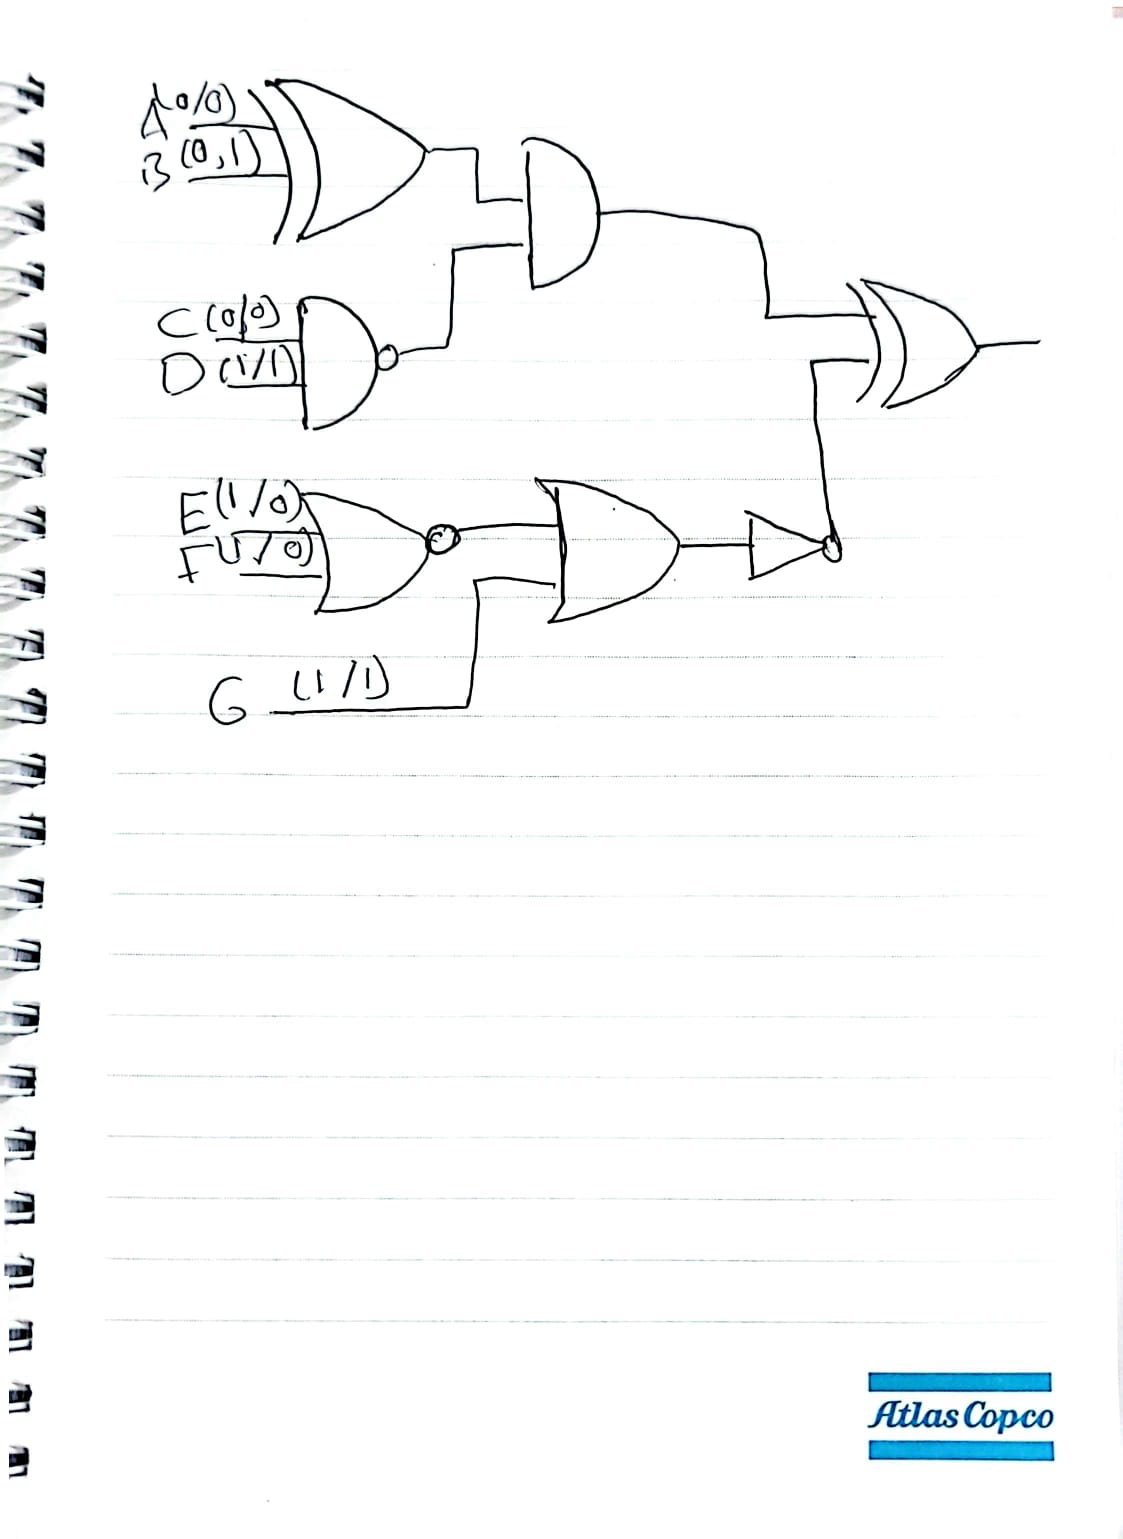 A (0/0)
B (0,1)
C (0/0)
D (1/1)
E (1/0)
F (1/0)
G (1/1)
Atlas Copco